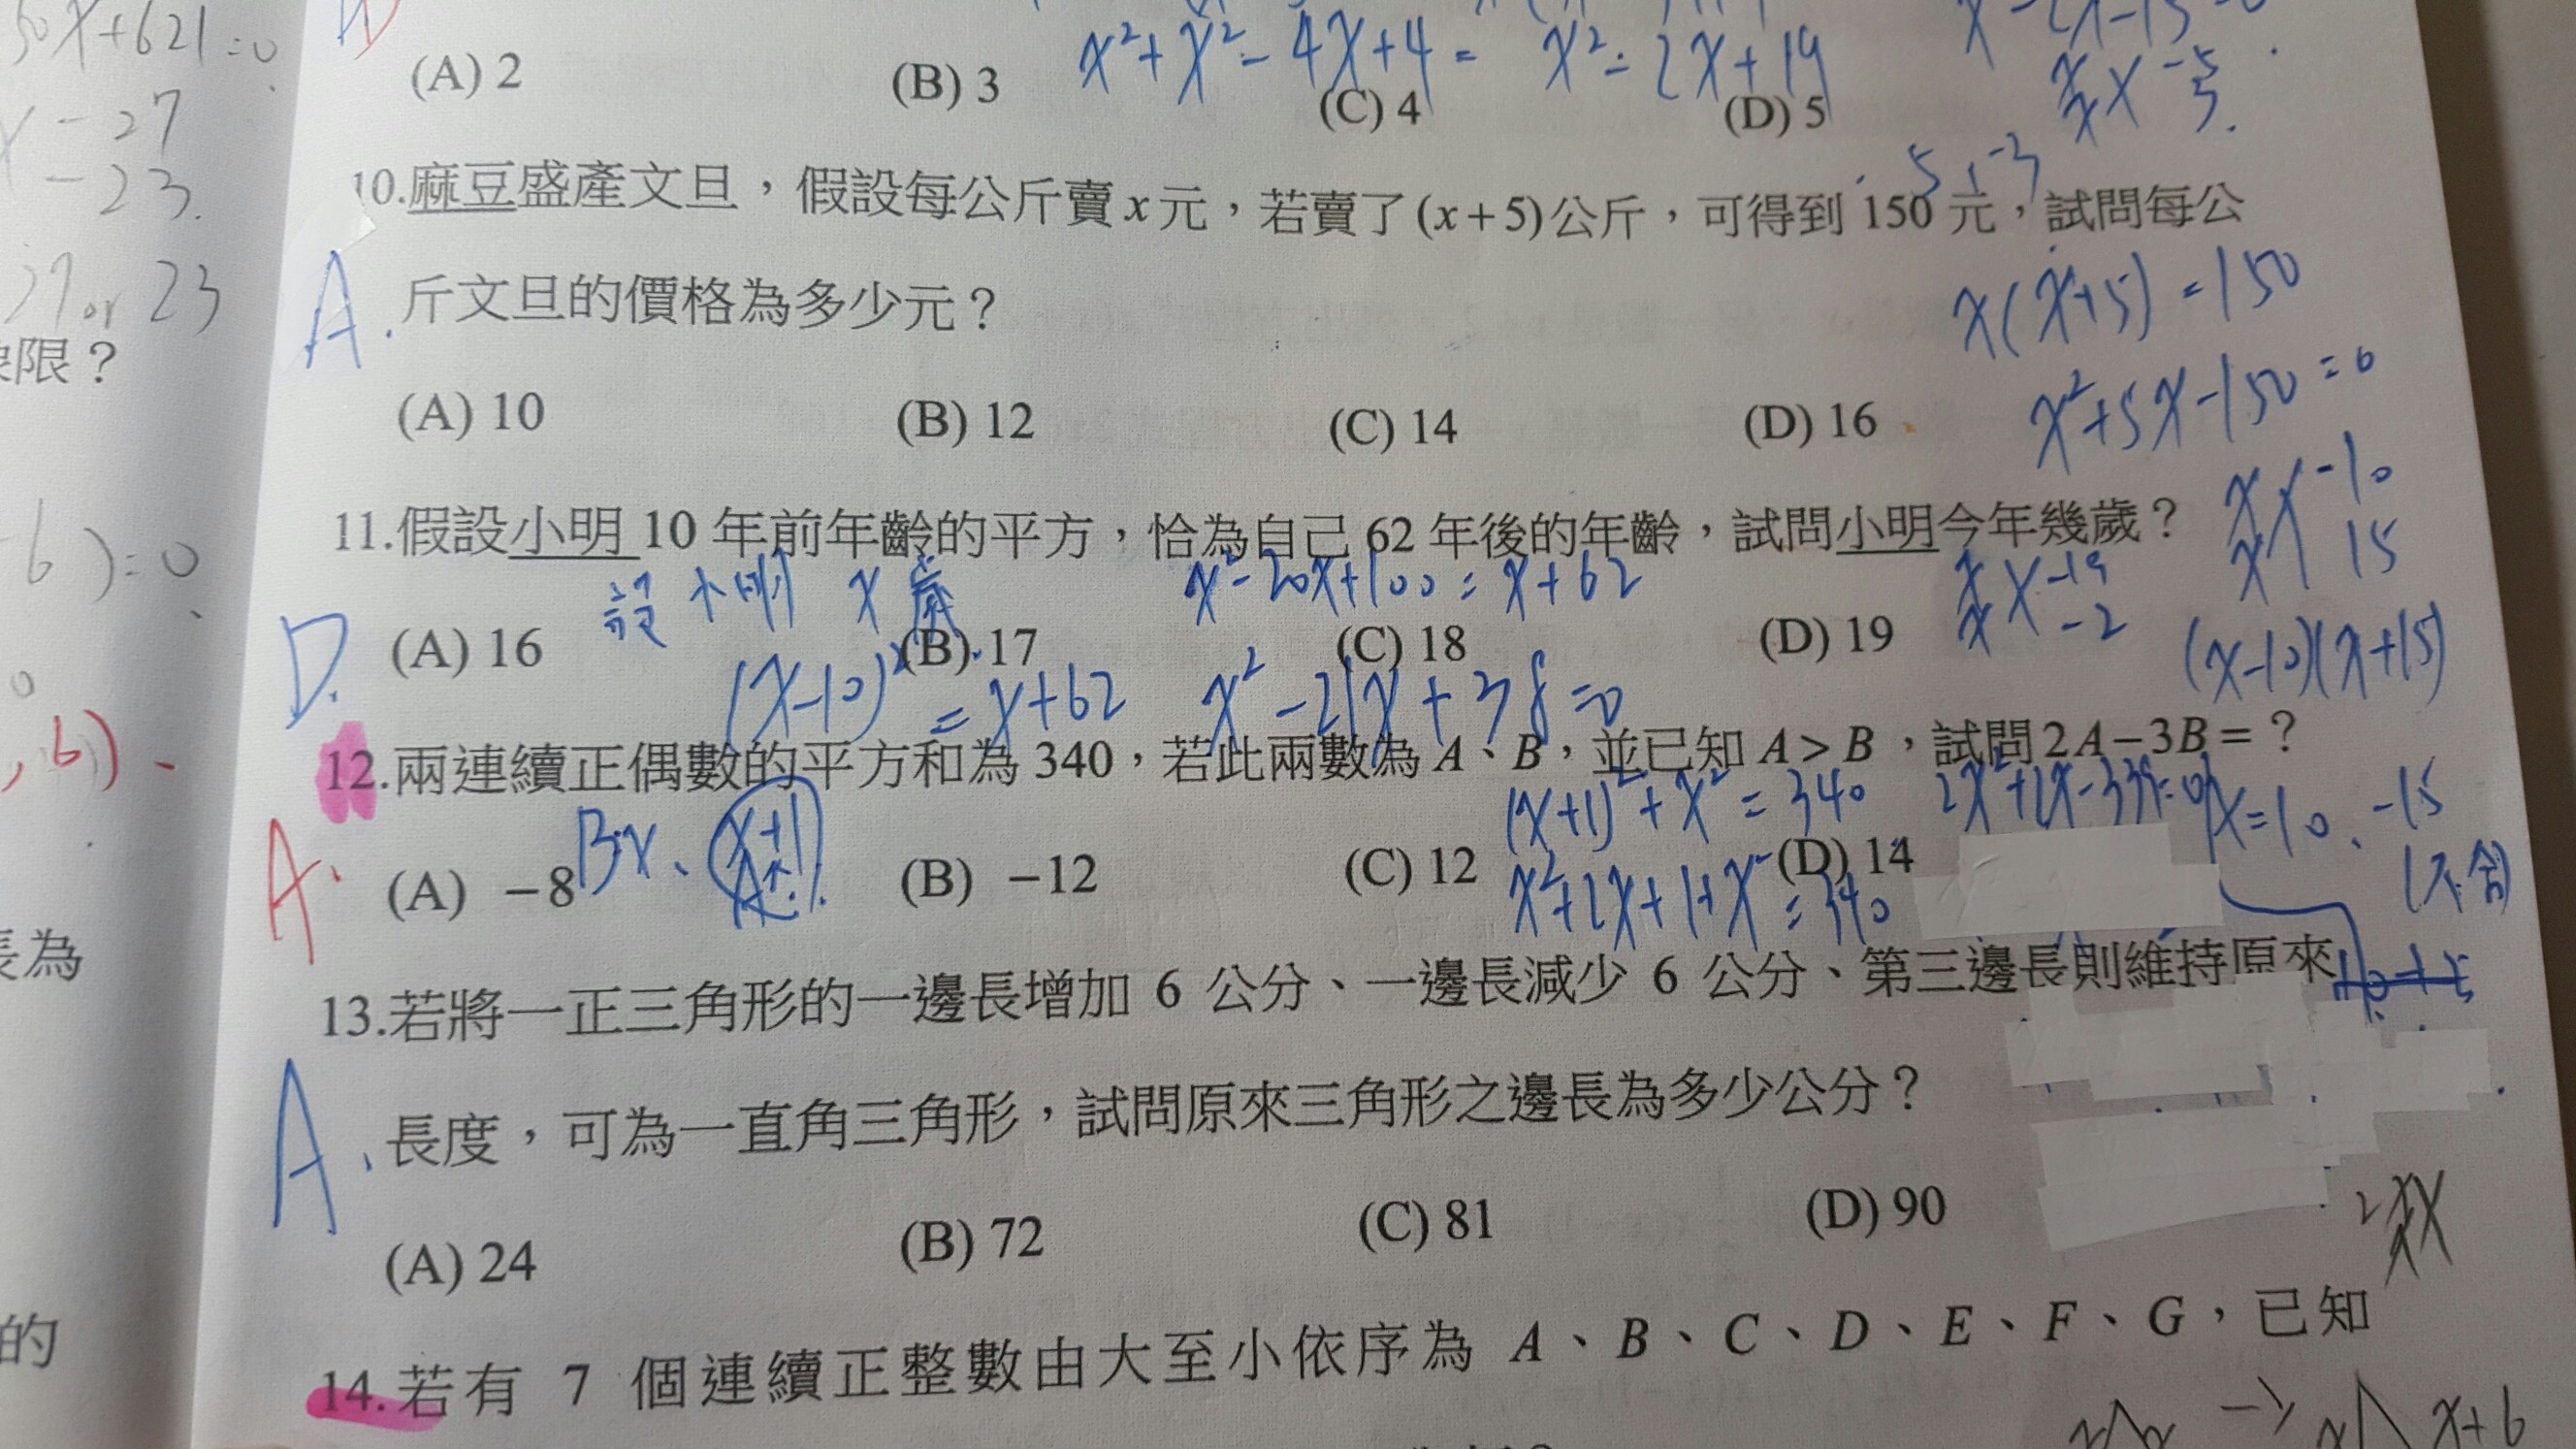 50x+621=0
x -27
-23.
27 or 23
象限？
6)=0
0
,6)、
長為
的
(A) 2
(B) 3
(C) 4
(D) 5
x²+x²-4x+4= x²-2x+19
x -5
x 3.
5,-3
10.麻豆盛產文旦，假設每公斤賣 x 元，若賣了(x+5)公斤，可得到 150 元，試問每公
A. 斤文旦的價格為多少元？
x(x+5)=150
x²+5x-150=0
(A) 10
(B) 12
(C) 14
(D) 16
x -10
x 15
(x-10)(x+15)
x=10、-15
(不合)
11.假設小明 10 年前年齡的平方，恰為自己 62 年後的年齡，試問小明今年幾歲？
設小明 x 歲
x²-20x+100=x+62
x -19
x -2
D. (A) 16
(B) 17
(C) 18
(D) 19
(x-10)²=x+62
x²-21x+38=0
12.兩連續正偶數的平方和為 340，若此兩數為 A、B，並已知 A > B，試問 2A−3B = ？
Bx、x+1
A↑
(x+1)²+x²=340
2x²+2x-339=0
A. (A) −8
(B) −12
(C) 12
(D) 14
x²+2x+1+x²=340
13.若將一正三角形的一邊長增加 6 公分、一邊長減少 6 公分、第三邊長則維持原來
A、長度，可為一直角三角形，試問原來三角形之邊長為多少公分？
(A) 24
(B) 72
(C) 81
(D) 90
14.若有 7 個連續正整數由大至小依序為 A、B、C、D、E、F、G，已知
x+6